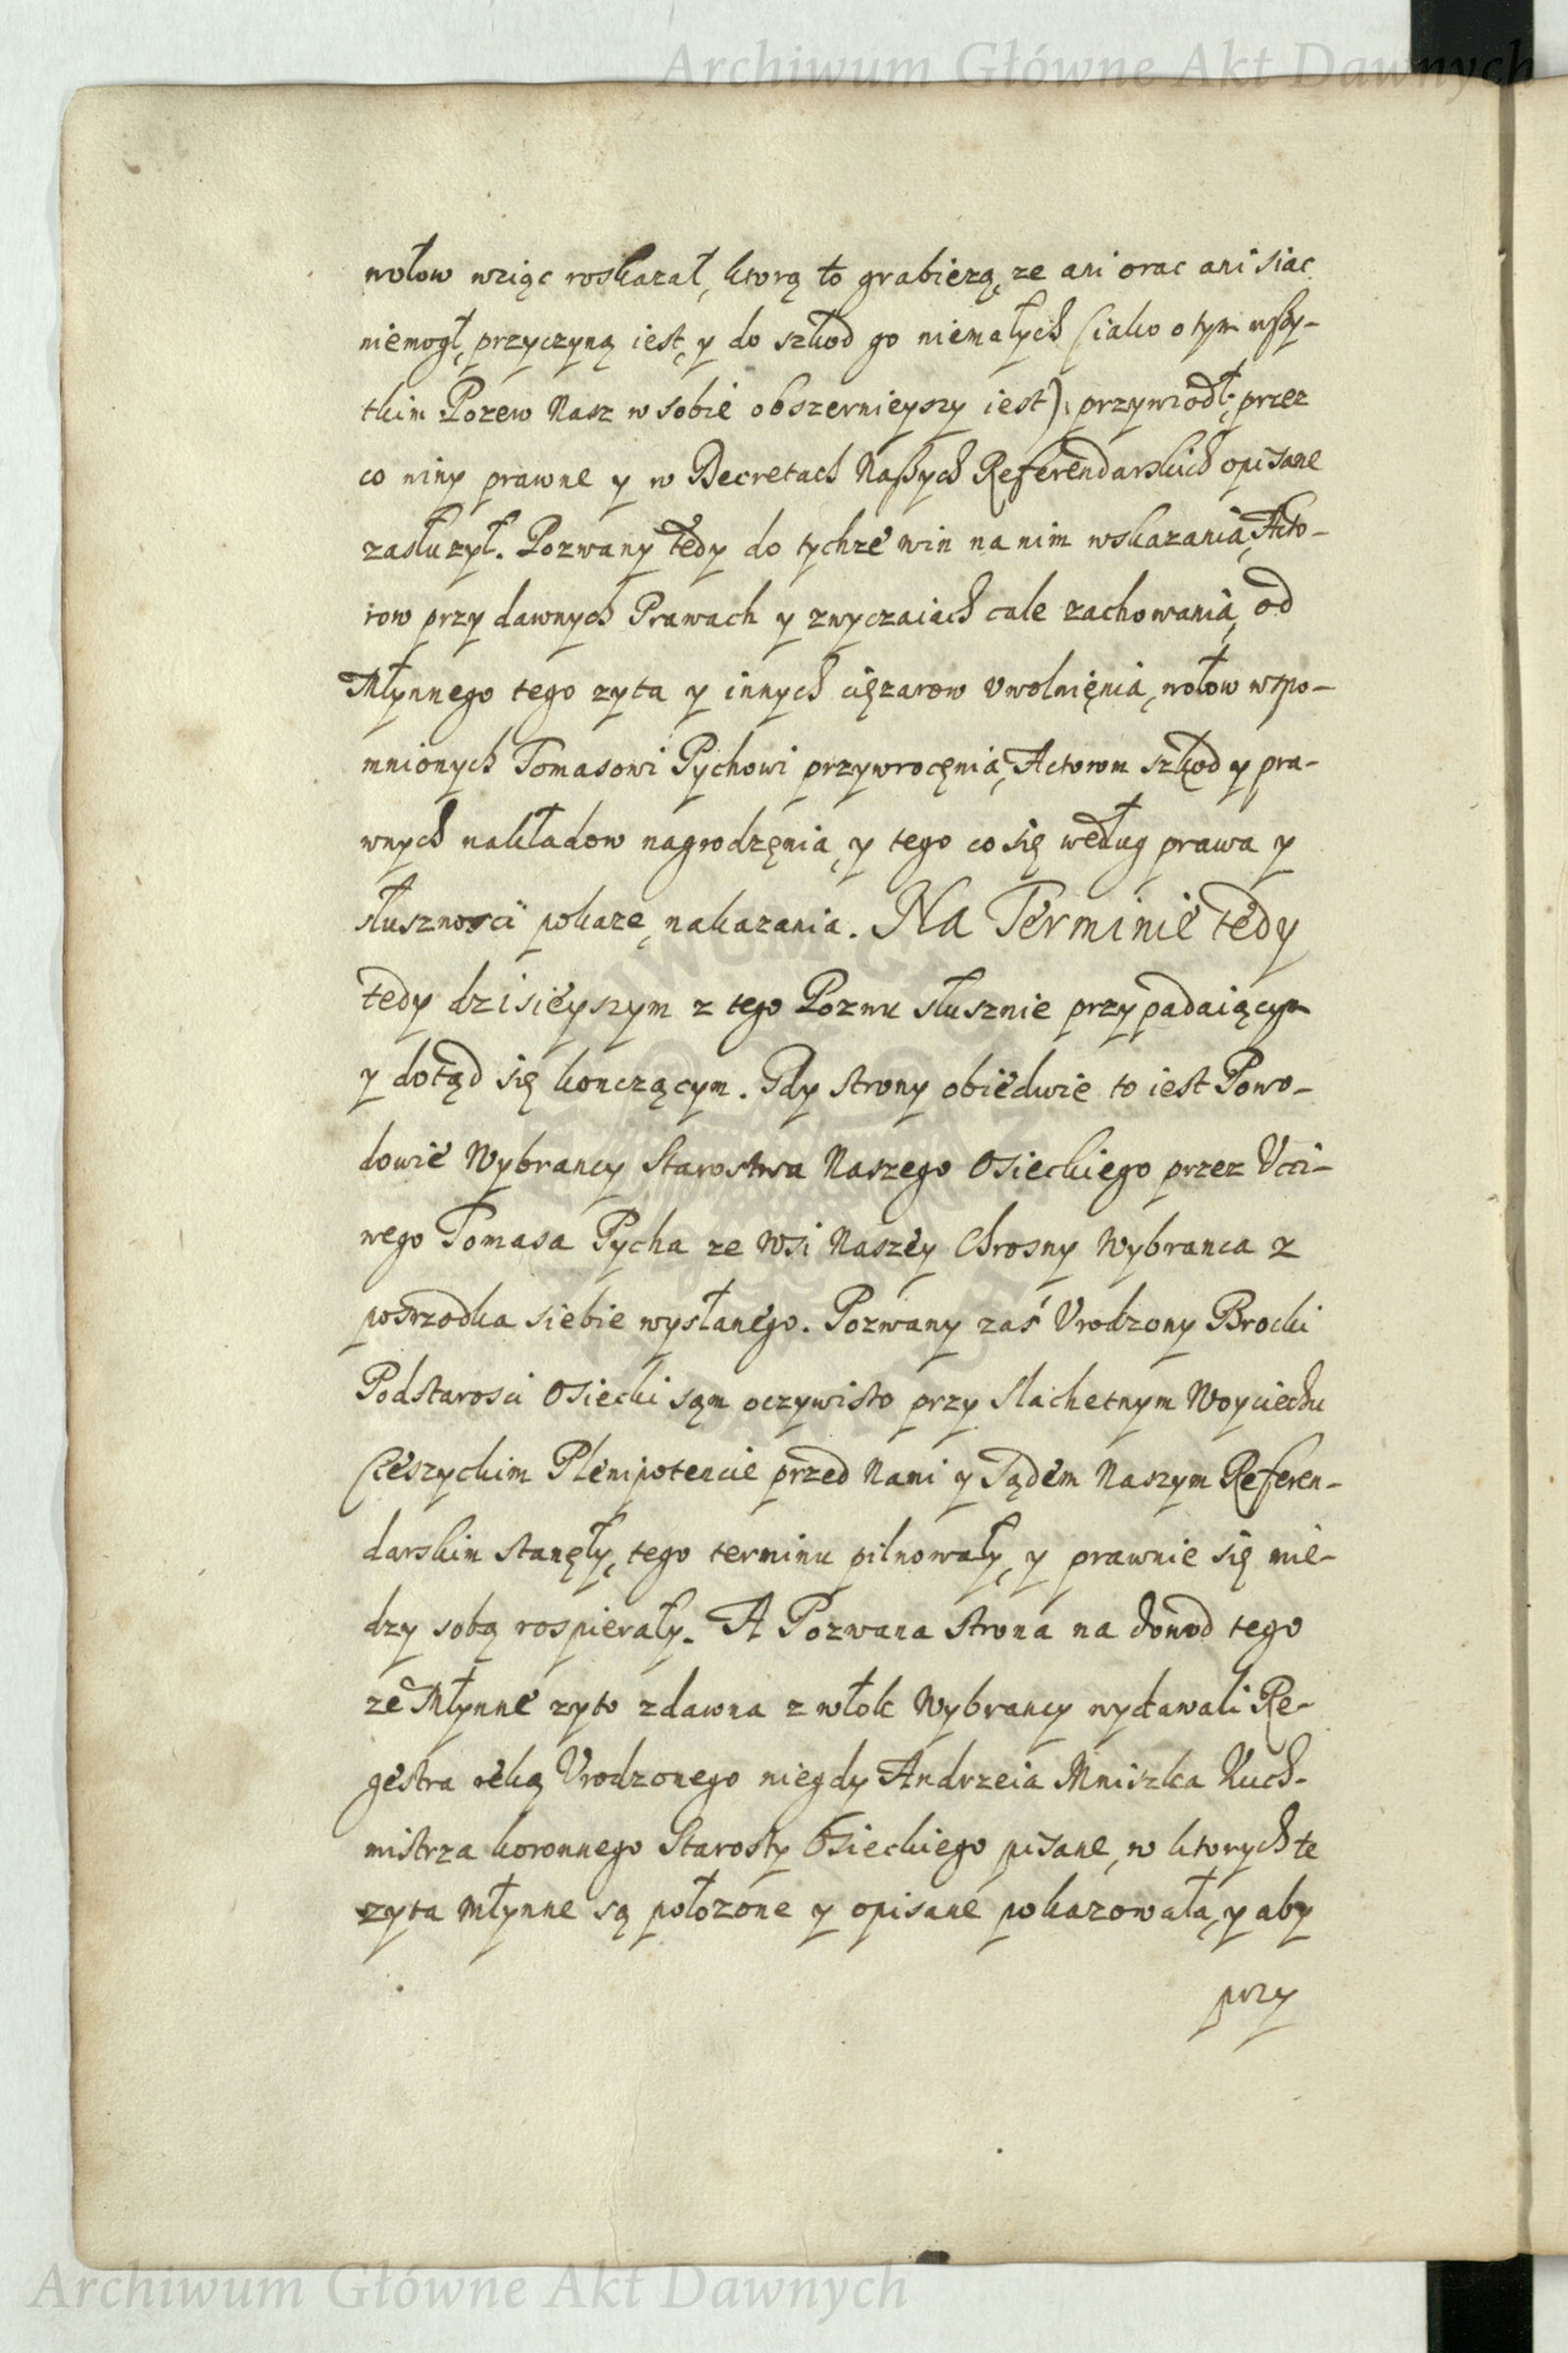 Archiwum Główne Akt Dawnych
wołow wziąc roskazał, ktorą to grabieżą, ze ani orac ani siac
niemogł, przyczyną iest, y do szkod go niemałych (iako o tym wszy-
tkim Pozew Nasz w sobie obszernieyszy iest) przywiodł, przez
co winy prawne y w Decretach Naszych Referendarskich opisane
zasłuzył. Pozwany tedy do tychze win na nim wskazania, Acto-
row przy dawnych Prawach y zwyczaiach cale zachowania, od
Młynnego tego zyta y innych cięzarow uwolnięnia, wołow wspo-
mnionych Tomasowi Pychowi przywrocęnia, Actorom szkod y pra-
wnych nakładow nagrodzęnia, y tego co się według prawa y
słusznosci pokaze, nakazania. Na Terminie tedy
tedy dzisieyszym z tego Pozwu słusznie przypadaiącym
y dotąd się konczącym. Gdy strony obiedwie to iest Powo-
dowie Wybrancy Starostwa Naszego Osieckiego przez Ucci-
wego Tomasa Pycha ze Wsi Naszey Chrosny Wybranca z
posrzodka siebie wysłanego. Pozwany zaś Urodzony Brocki
Podstarosci Osiecki sąm oczywisto przy Slachetnym Woyciechu
Cieszyckim Plenipotencie przed Nami y Sądem Naszym Referen-
darskim stanęły, tego terminu pilnowały, y prawnie się mie-
dzy sobą rospierały. A Pozwana strona na dowod tego
ze Młynne zyto zdawna z włok Wybrancy wydawali Re-
gestra ręką Urodzonego niegdy Andrzeia Mniszka Kuch-
mistrza koronnego Starosty Osieckiego pisane, w ktorych te
zyta młynne są połozone y opisane pokazowała, y aby
przy
Archiwum Główne Akt Dawnych